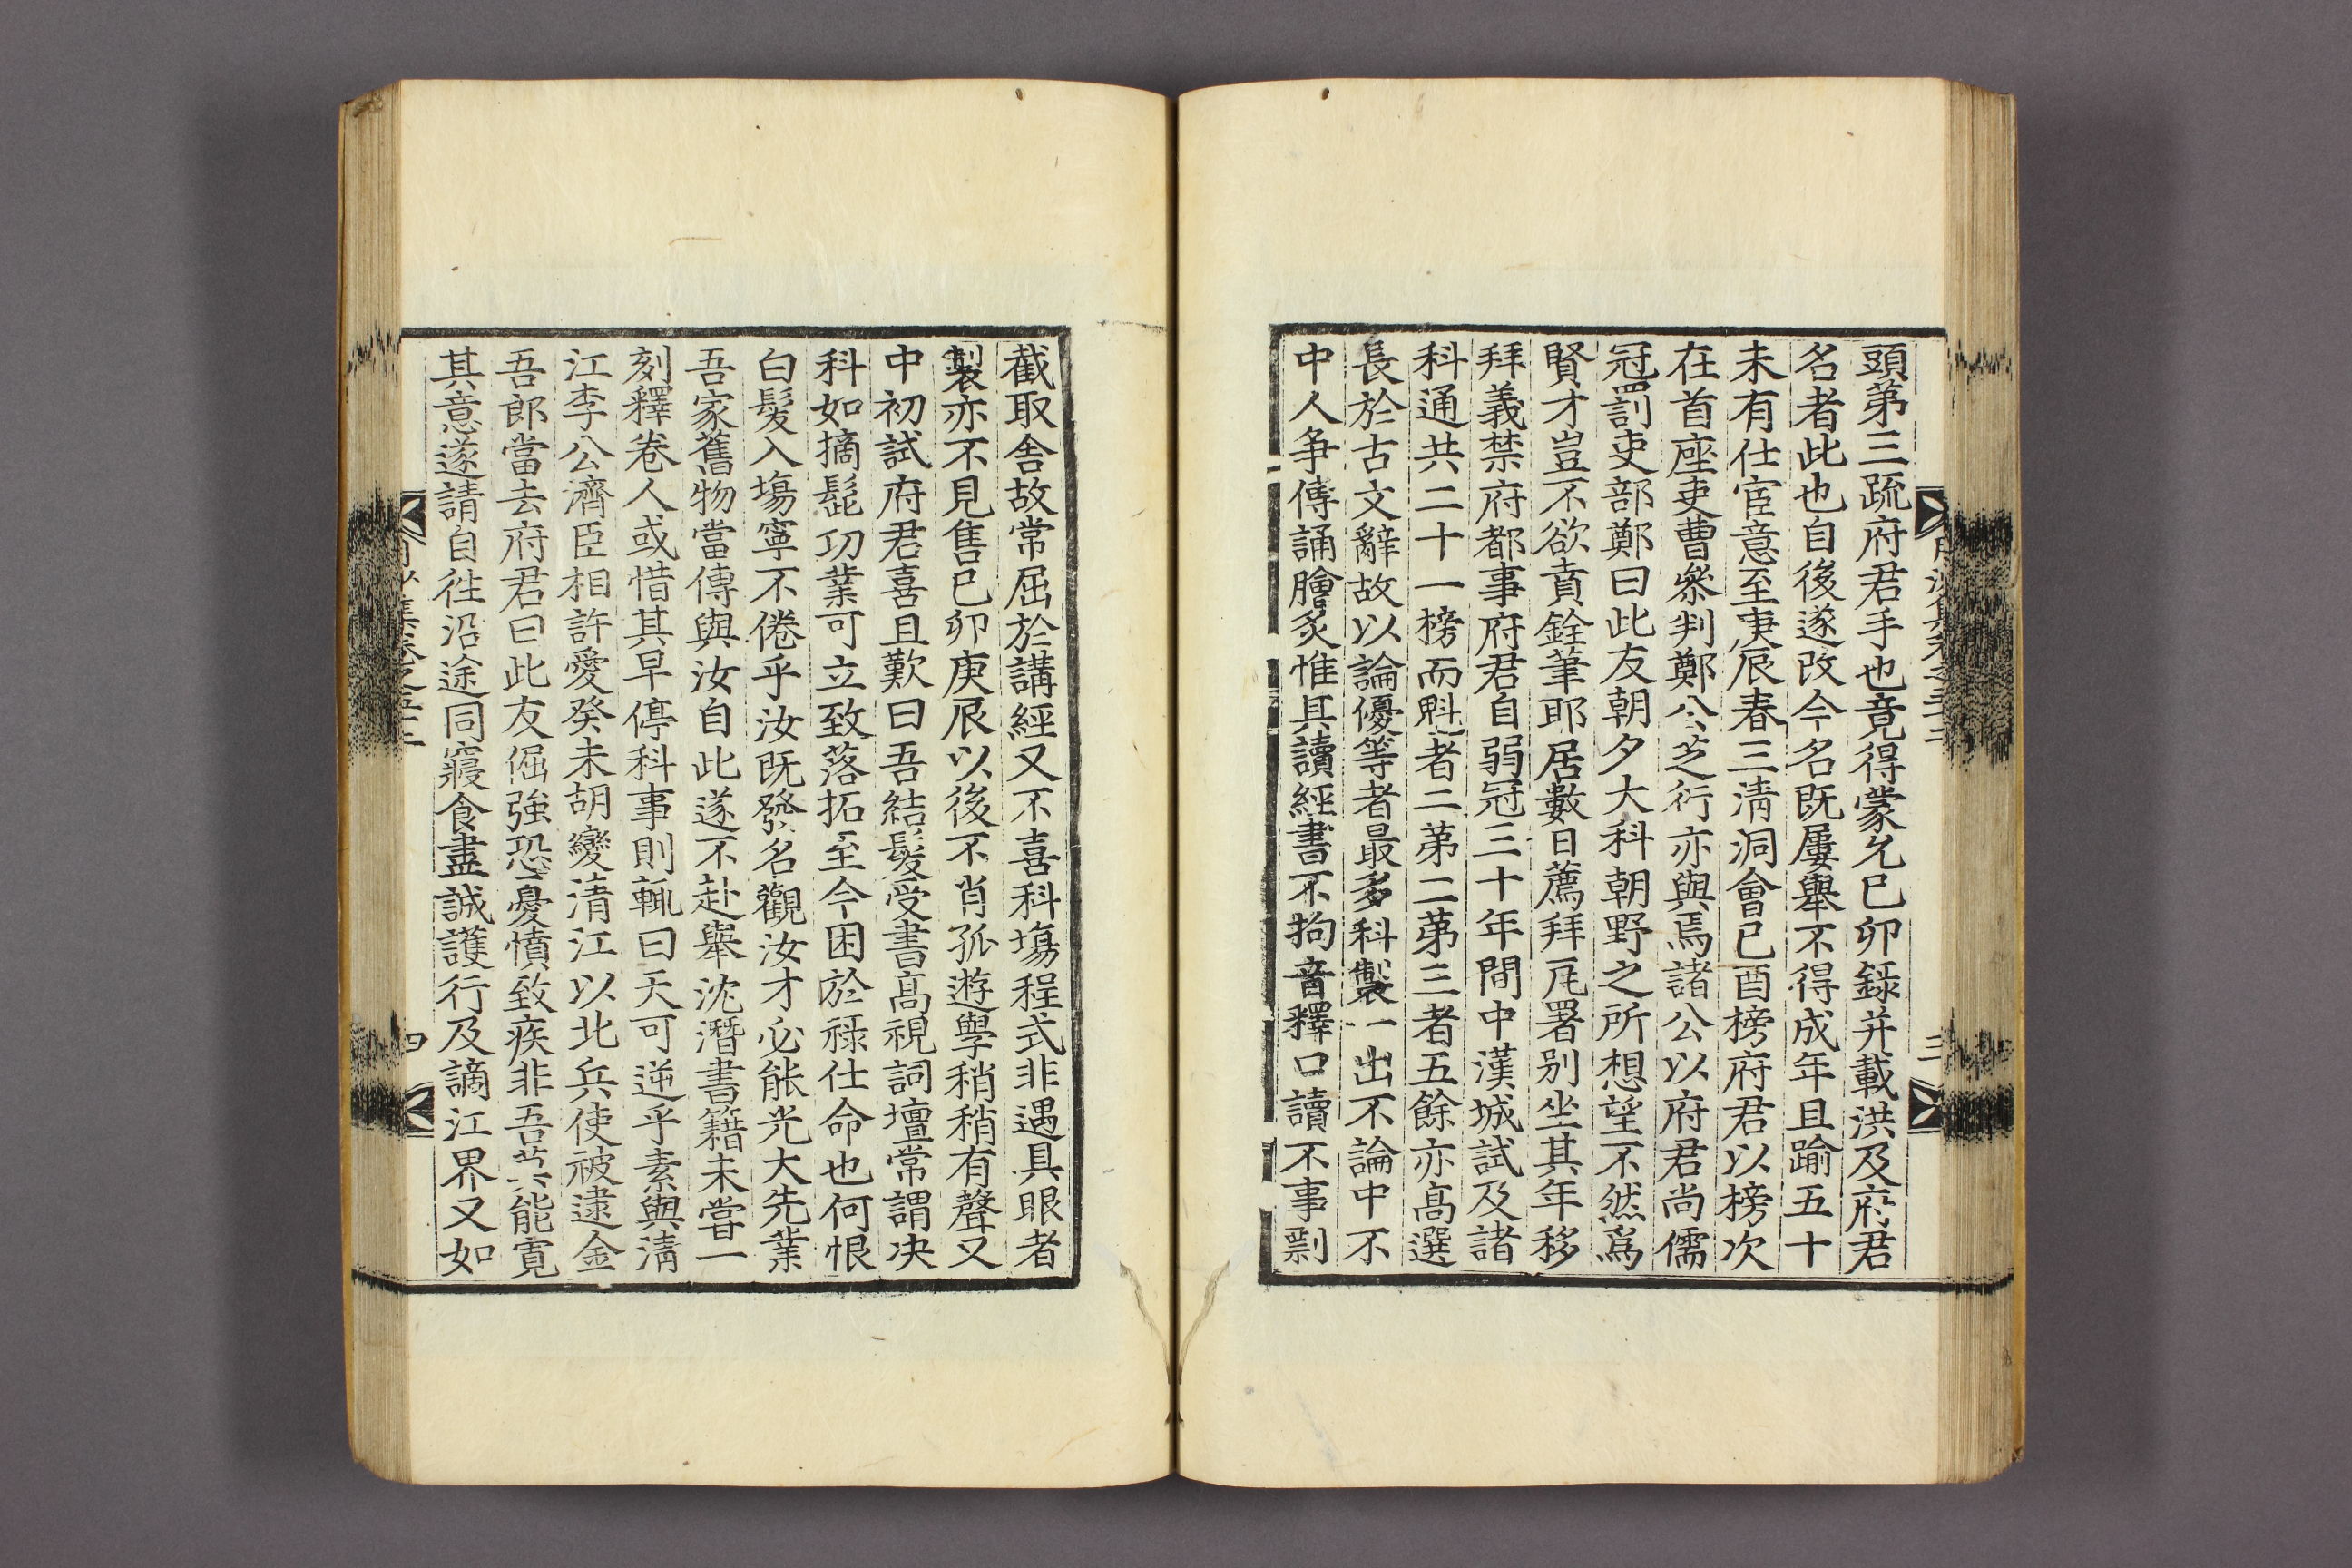 頭第三疏府君手也竟得蒙允己卯錄并載洪及府君
名者此也自後遂改今名旣屢擧不得成年且踰五十
未有仕宦意至庚辰春三淸洞會己酉榜府君以榜次
在首座吏曹叅判鄭公芝衍亦與焉諸公以府君尚儒
冠罰吏部鄭曰此友朝夕大科朝野之所想望不然爲
賢才豈不欲賁銓筆耶居數日薦拜瓦署別坐其年移
拜義禁府都事府君自弱冠三十年間中漢城試及諸
科通共二十一榜而魁者二第二第三者五餘亦高選
長於古文辭故以論優等者最多科製一出不論中不
中人爭傳誦膾炙惟其讀經書不拘音釋口讀不事剽
截取舍故常屈於講經又不喜科塲程式非遇具眼者
製亦不見售己卯庚辰以後不肖孤遊學稍稍有聲又
中初試府君喜且歎曰吾結髮受書高視詞壇常謂决
科如摘髭功業可立致落拓至今困於祿仕命也何恨
白髮入塲寧不倦乎汝旣發名觀汝才必能光大先業
吾家舊物當傳與汝自此遂不赴擧沈潛書籍未嘗一
刻釋卷人或惜其早停科事則輒曰天可逆乎素與淸
江李公濟臣相許愛癸未胡變清江以北兵使被逮金
吾郎當去府君曰此友倔強恐憂憤致疾非吾莫能寬
其意遂請自往沿途同寢食盡誠護行及謫江界又如
三
四